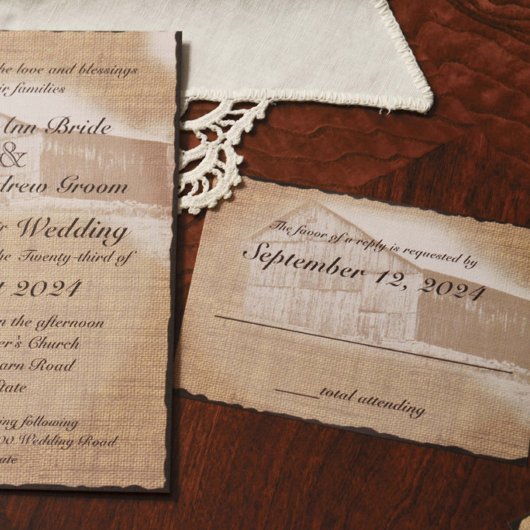 the love and blessings
families
Bride
&
Groom
Wedding
the Twenty-third of
2024
in the afternoon
Church
Road
State
following
00 Wedding Road
The favor of a reply is requested by
September 12, 2024
total attending